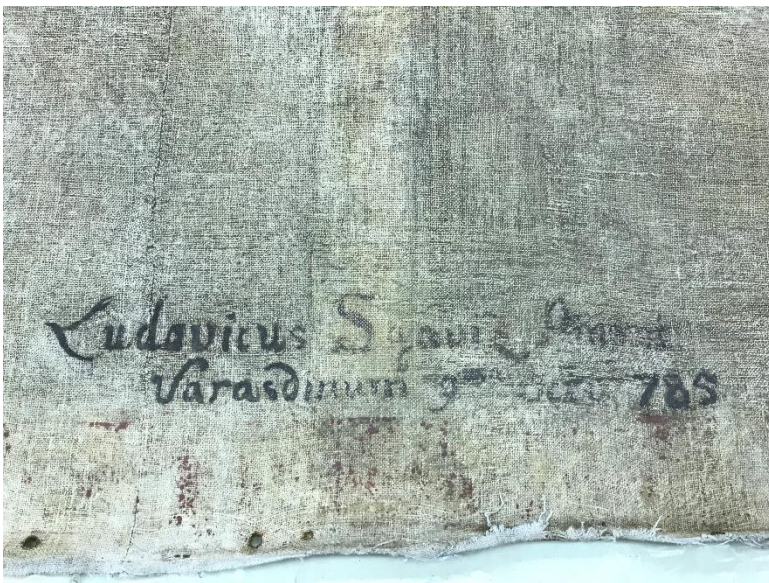 Ludovicus Sgaviz Pinxit
Varasdinum 9 785